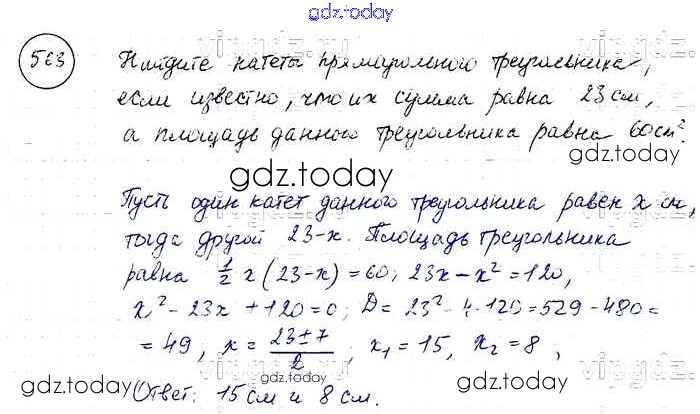 gdz.today
563
Найдите катеты прямоугольного треугольника,
если известно, что их сумма равна 23 см,
а площадь данного треугольника равна 60 см².
gdz.today
gdz.today
Пусть один катет данного треугольника равен x см,
тогда другой 23-x. Площадь треугольника
равна 1/2 x(23-x)=60; 23x-x²=120,
x²-23x+120=0; D=23²-4·120=529-480=
=49, x=(23±7)/2; x₁=15, x₂=8;
Ответ: 15 см и 8 см.
gdz.today
gdz.today
gdz.today